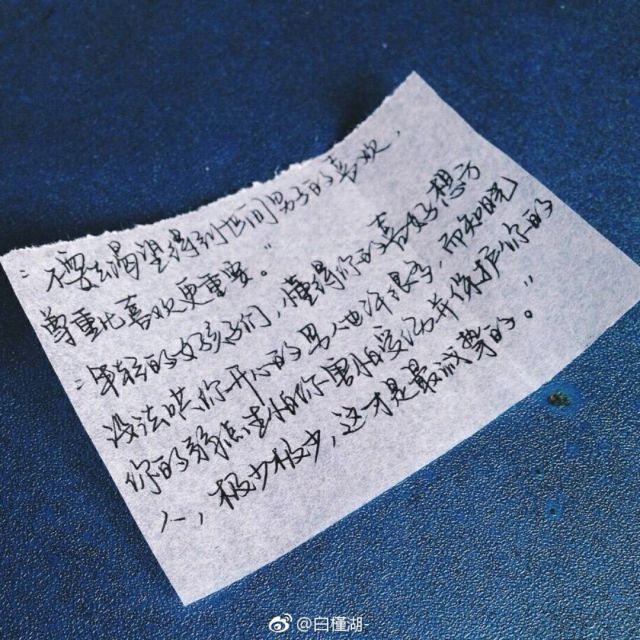 "不要去渴望得到世间男子的喜欢,
尊重比喜欢更重要。"
"年轻的女孩子们,懂得你的喜好想方
没法哄你开心的男人也许很多,而知晓
你的弱点生怕你害怕受伤并保护你的
人,极少极少,这才是最减夢的。"
@白槿湖-